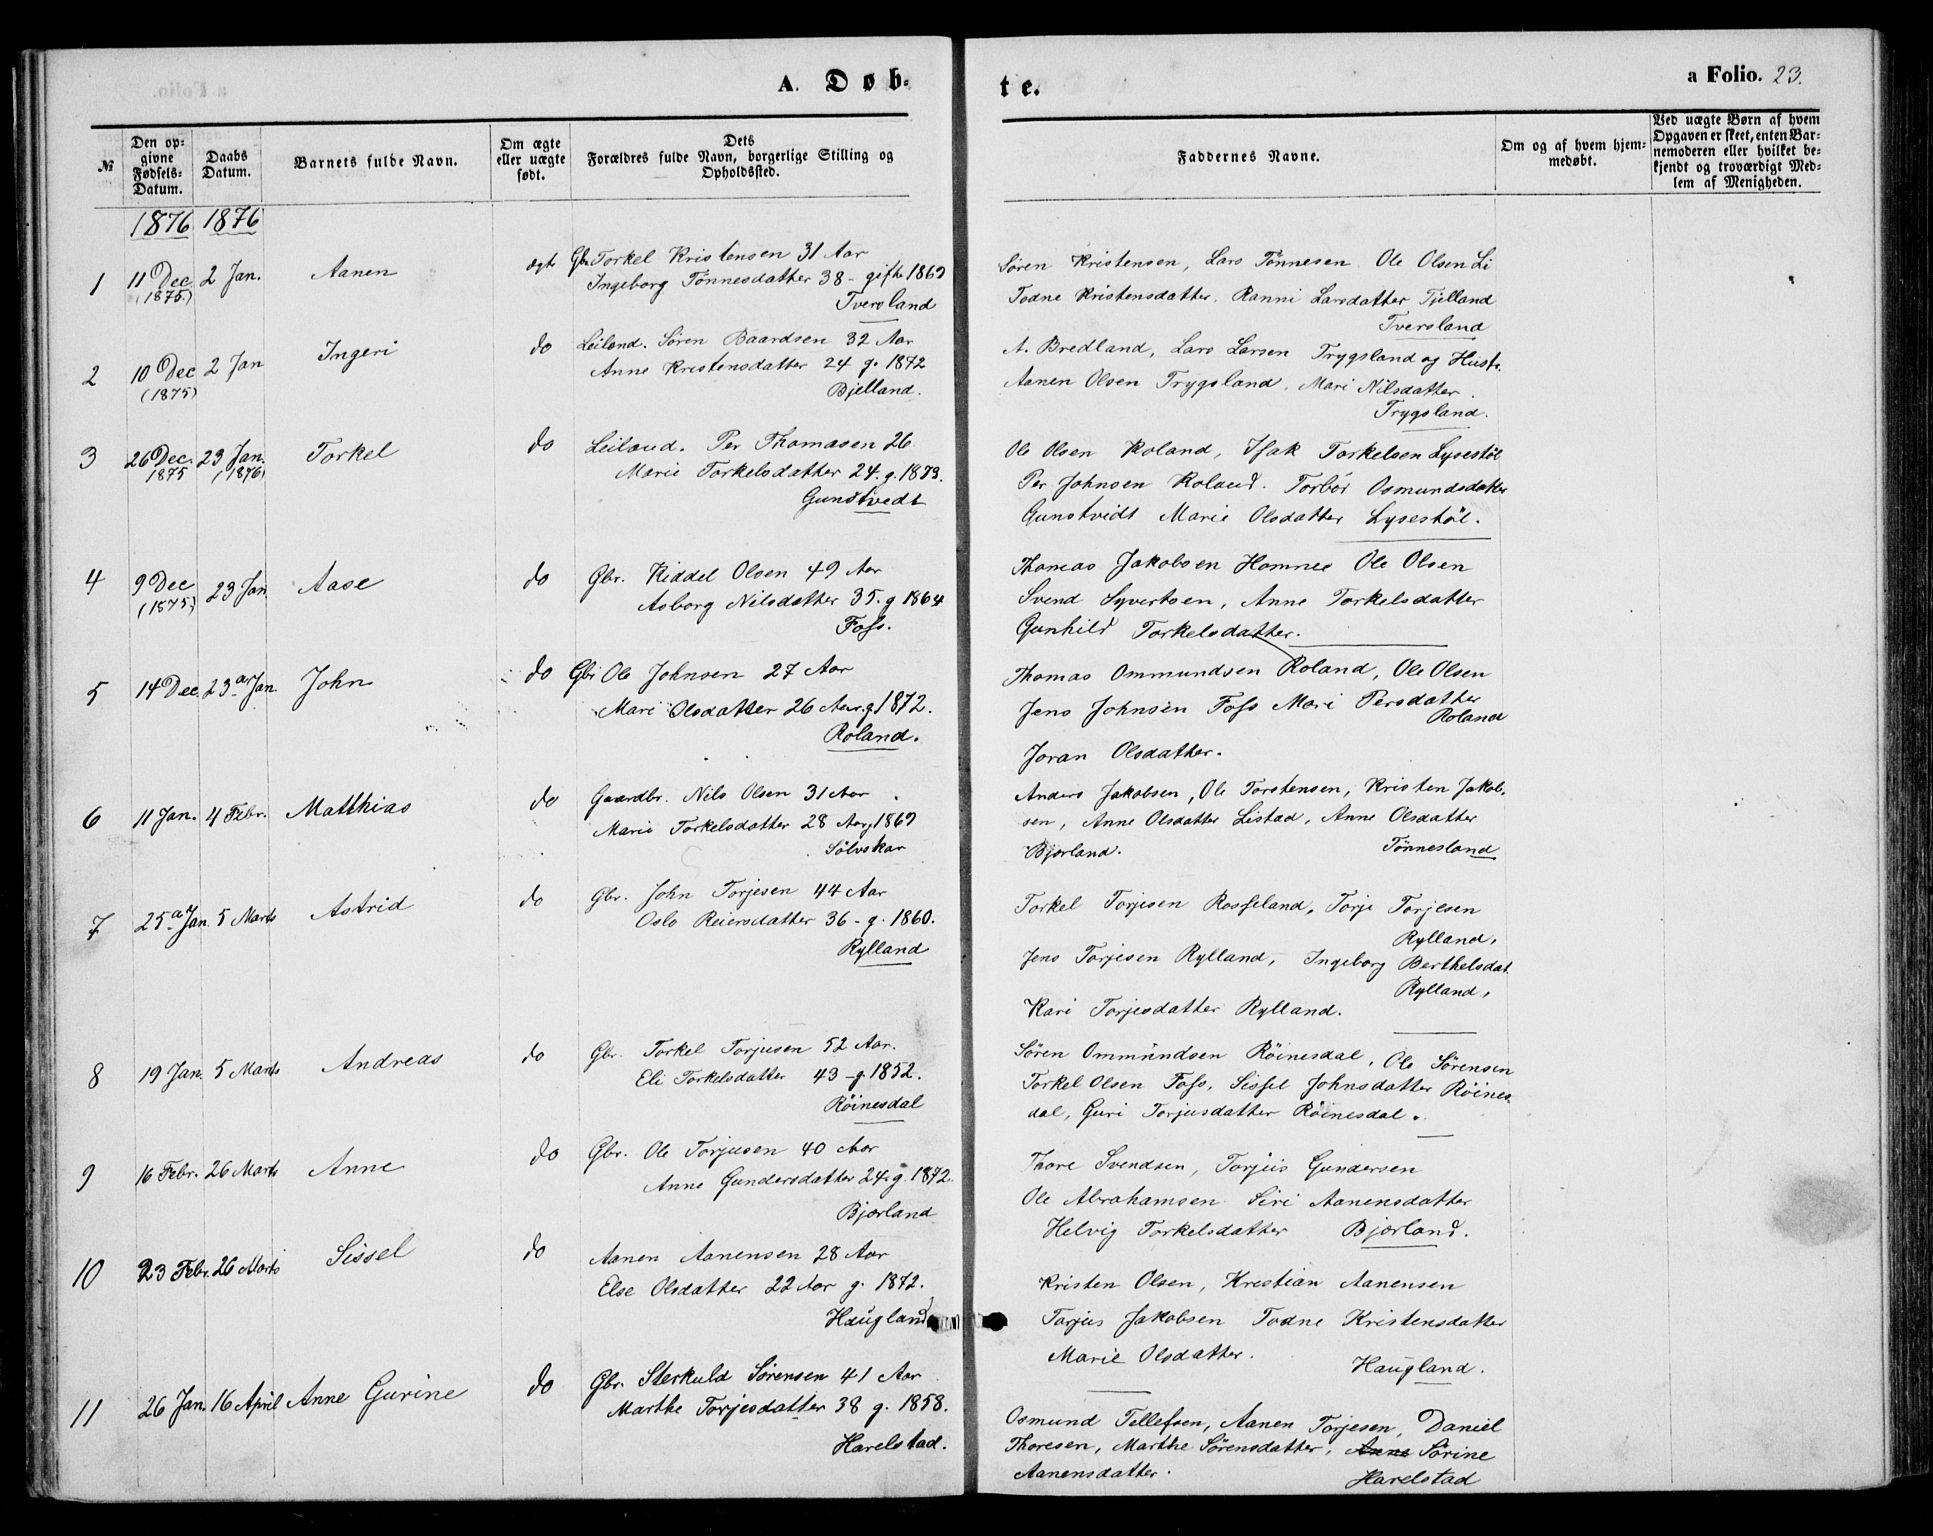 A. Døb-
te.
a Folio. 23.
№
Den op-
givne
Fødsels-
Datum.
Daabs
Datum.
Barnets fulde Navn.
Om ægte
eller uægte
født.
Dets
Forældres fulde Navn, borgerlige Stilling og
Opholdssted.
Faddernes Navne.
Om og af hvem hjem-
medøbt.
Ved uægte Børn af hvem
Opgaven er skeet, enten Bar-
nemoderen eller hvilket be-
kjendt og troværdigt Med-
lem af Menigheden.
1876 1876
1 11 Dec 2 Jan. Aanen ægte Gbr. Torkel Kristensen 31 Aar
(1875.) Ingeborg Tønnesdatter 38 - gift 1869
Tversland
Søren Kristensen, Lars Tønnesen Ole Olsen Li
Todne Kristensdatter. Ranni Larsdatter Tjelland
Tversland
2 10 Dec 2 Jan Ingeri do Leilænd. Søren Baardsen 32 Aar
(1875) Anne Kristensdatter 24 g. 1872
Bjelland.
A. Bredland, Lars Larsen Trygsland og Hustr.
Aanen Olsen Trygsland. Mari Nilsdatter
Trygsland.
3 26 Dec. 23 Jan. Torkel do Leilænd. Per Thomasen 26
1875 (1876) Marie Torkelsdatter 24. g. 1873.
Gunstvedt
Ole Olsen Roland, Isak Torkelsen Lysestøl
Per Johnsen Roland. Torbør Osmundsdatter
Gunstvidt Marie Olsdatter Lysestøl.
4 9 Dec 23 Jan Aase do Gbr. Kiddel Olsen 49 Aar
(1875) Asborg Nilsdatter 35. g 1864
Foss.
Thomas Jakobsen Homnee Ole Olsen
Svend Syvertsen, Anne Torkelsdatter
Gunhild Torkelsdatter.
5 14 Dec. 23 Jan. John do Gbr Ole Johnsen 27 Aar
Mari Olsdatter 26 Aar. g 1872.
Roland.
Thomas Ommundsen Roland, Ole Olsen
Jens Johnsen Foss Mari Persdatter
Roland
Joran Olsdatter.
6 11 Jan. 4 Febr. Matthias do Gaardbr. Nils Olsen 31 Aar
Marie Torkelsdatter 28 Aar, 1869
Sølvskar
Anders Jakobsen, Ole Torstensen, Kristen Jakob-
sen, Anne Olsdatter Listad, Anne Olsdatter
Bjorland. Tønnesland
7 25 Jan. 5 Marts Astrid do Gbr. John Torjesen 44 Aar
Oslo Reiersdatter 36 - g. 1860.
Rylland
Torkel Torjesen Rosseland, Torje Torjesen
Rylland,
Jens Torjesen Rylland, Ingeborg Berthelsdat.
Rylland,
Kari Torjesdatter Rylland.
8 19 Jan. 5 Marts Andreas do Gbr. Torkel Torjusen 52 Aar.
Eli Torkelsdatter 43 - g. 1852.
Røinesdal
Søren Ommundsen Røinesdal, Ole Sørensen
Torkel Olsen Foss, Sissel Johnsdatter Røines-
dal, Guri Torjusdatter Røinesdal.
9 16 Febr. 26 Marts Anne do Gbr. Ole Torjusen 40 Aar
Anne Gundersdatter 24. g. 1872.
Bjorland
Thore Svendsen, Torjuis Gundersen
Ole Abrahamsen Siri Aanensdatter
Helvig Torkelsdatter Bjorland.
10 23 Febr. 26 Marts Sissel do Aanen Aanensen 28 Aar
Else Olsdatter 22 Aar g. 1872.
Haugland
Kristen Olsen, Kristian Aanensen
Tarjus Jakobsen Todne Kristensdatter
Marie Olsdatter. Haugland.
11 26 Jan. 16 April Anne Gurine do Gbr. Sterkuld Sørensen 41 Aar
Marthe Torjesdatter 38 g. 1858.
Harelstad.
Osmund Tellefsen, Aanen Torjesen, Daniel
Thoresen, Marthe Sørensdatter, Anne Sørine
Aanensdatter. Harelstad